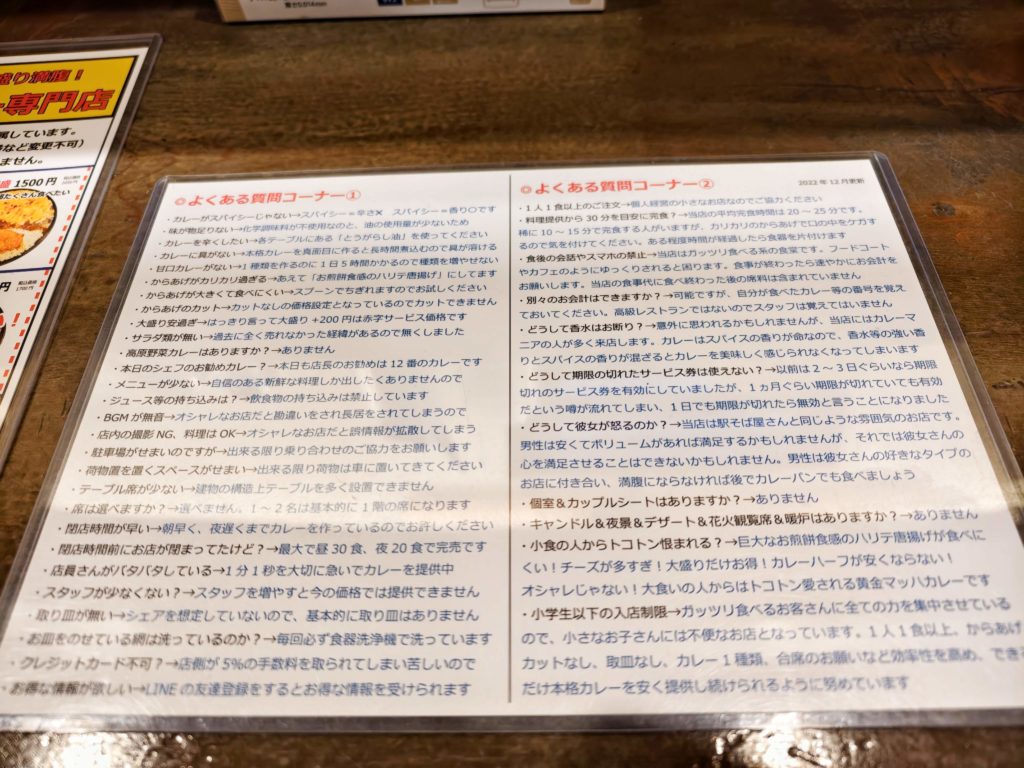 厚さ0.014mm
盛り満腹!
専門店
属しています。
など変更不可)
ません。
盛 1500円
たくさん食べたい
円
◎よくある質問コーナー①
・カレーがスパイシーじゃない→スパイシー=辛さ✕ スパイシー=香り○です
・味が物足りない→化学調味料が不使用なのと、油の使用量が少ないため
・カレーを辛くしたい→各テーブルにある「とうがらし油」を使ってください
・カレーに具がない→本格カレーを真面目に作ると長時間煮込むので具が溶ける
・甘口カレーがない→1種類を作るのに1日5時間かかるので種類を増やせない
・からあげがカリカリ過ぎる→あえて「お煎餅食感のハリテ唐揚げ」にしてます
・からあげが大きくて食べにくい→スプーンでちぎれますのでお試しください
・からあげのカット→カットなしの価格設定となっているのでカットできません
・大盛り安過ぎ→はっきり言って大盛り+200円は赤字サービス価格です
・サラダ類が無い→過去に全く売れなかった経緯があるので無くしました
・高原野菜カレーはありますか?→ありません
・本日のシェフのお勧めカレー?→本日も店長のお勧めは12番のカレーです
・メニューが少ない→自信のある新鮮な料理しか出したくありませんので
・ジュース等の持ち込みは?→飲食物の持ち込みは禁止しています
・BGMが無音→オシャレなお店だと勘違いをされ長居をされてしまうので
・店内の撮影NG、料理はOK→オシャレなお店だと誤情報が拡散してしまう
・駐車場がせまいのですが→出来る限り乗り合わせのご協力をお願いします
・荷物置を置くスペースがせまい→出来る限り荷物は車に置いてきてください
・テーブル席が少ない→建物の構造上テーブルを多く設置できません
・席は選べますか?→選べません。1~2名は基本的に1階の席になります
・閉店時間が早い→朝早く、夜遅くまでカレーを作っているのでお許しください
・閉店時間前にお店が閉まってたけど?→最大で昼30食、夜20食で完売です
・店員さんがバタバタしている→1分1秒を大切に急いでカレーを提供中
・スタッフが少なくない?→スタッフを増やすと今の価格では提供できません
・取り皿が無い→シェアを想定していないので、基本的に取り皿はありません
・お皿をのせている網は洗っているのか?→毎回必ず食器洗浄機で洗っています
・クレジットカード不可?→店側が5%の手数料を取られてしまい苦しいので
・お得な情報が欲しい→LINEの友達登録をするとお得な情報を受けられます
◎よくある質問コーナー② 2022年12月更新
・1人1食以上のご注文→個人経営の小さなお店なのでご協力ください
・料理提供から30分を目安に完食?→当店の平均完食時間は20~25分です。
稀に10~15分で完食する人がいますが、カリカリのからあげで口の中をケガす
るので気を付けてください。ある程度時間が経過したら食器を片付けます
・食後の会話やスマホの禁止→当店はガッツリ食べる系の食堂です。フードコート
やカフェのようにゆっくりされると困ります。食事が終わったら速やかにお会計を
お願いします。当店の食事代に食べ終わった後の席料は含まれていません
・別々のお会計はできますか?→可能ですが、自分が食べたカレー等の番号を覚え
ておいてください。高級レストランではないのでスタッフは覚えてはいません
・どうして香水はお断り?→意外に思われるかもしれませんが、当店にはカレーマ
ニアの人が多く来店します。カレーはスパイスの香りが命なので、香水等の強い香
りとスパイスの香りが混ざるとカレーを美味しく感じられなくなってしまいます
・どうして期限の切れたサービス券は使えない?→以前は2~3日ぐらいなら期限
切れのサービス券を有効にしていましたが、1ヵ月ぐらい期限が切れていても有効
だという噂が流れてしまい、1日でも期限が切れたら無効と言うことになりました
・どうして彼女が怒るのか?→当店は駅そば屋さんと同じような雰囲気のお店です。
男性は安くてボリュームがあれば満足するかもしれませんが、それでは彼女さんの
心を満足させることはできないかもしれません。男性は彼女さんの好きなタイプの
お店に付き合い、満腹にならなければ後でカレーパンでも食べましょう
・個室&カップルシートはありますか?→ありません
・キャンドル&夜景&デザート&花火観覧席&暖炉はありますか?→ありません
・小食の人からトコトン恨まれる?→巨大なお煎餅食感のハリテ唐揚げが食べに
くい!チーズが多すぎ!大盛りだけお得!カレーハーフが安くならない!
オシャレじゃない!大食いの人からはトコトン愛される黄金マッハカレーです
・小学生以下の入店制限→ガッツリ食べるお客さんに全ての力を集中させている
ので、小さなお子さんには不便なお店となっています。1人1食以上、からあげ
カットなし、取皿なし、カレー1種類、合席のお願いなど効率性を高め、できる
だけ本格カレーを安く提供し続けられるように努めています